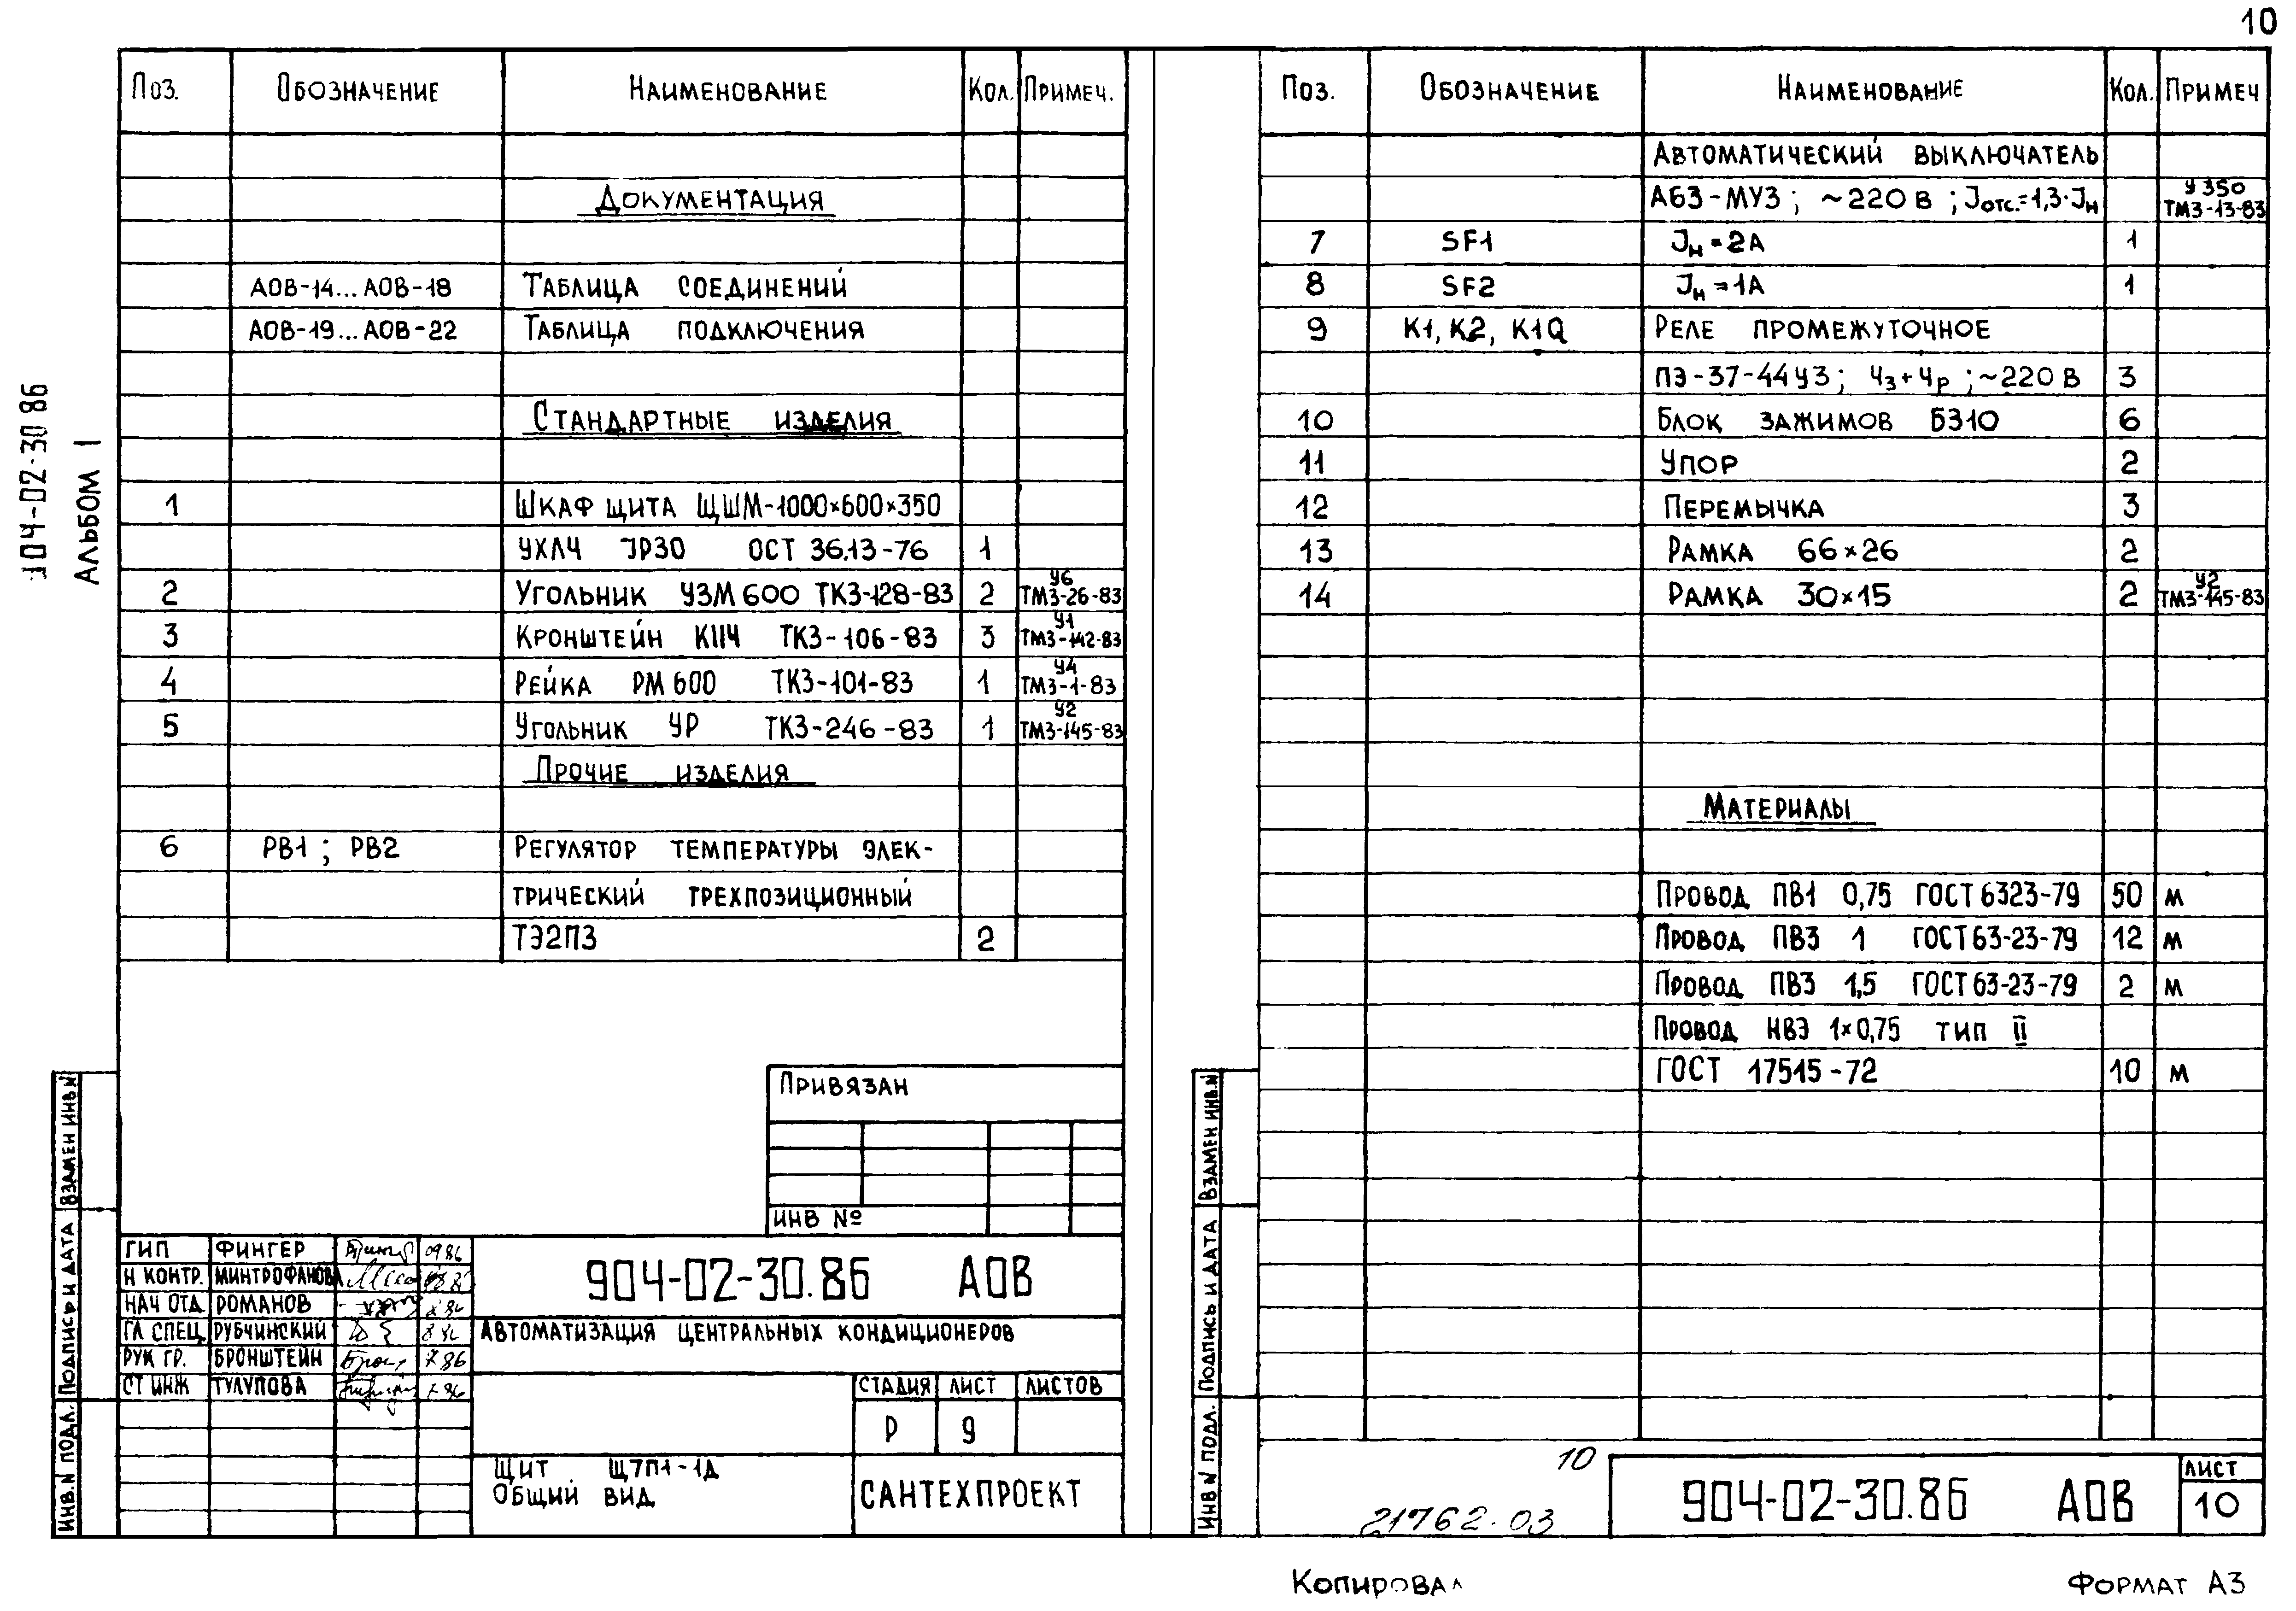 10
904-02-30.86
АЛЬБОМ 1
ПОЗ. ОБОЗНАЧЕНИЕ НАИМЕНОВАНИЕ КОЛ. ПРИМЕЧ.
ДОКУМЕНТАЦИЯ
АОВ-14...АОВ-18 ТАБЛИЦА СОЕДИНЕНИЙ
АОВ-19...АОВ-22 ТАБЛИЦА ПОДКЛЮЧЕНИЯ
СТАНДАРТНЫЕ ИЗДЕЛИЯ
1 ШКАФ ЩИТА ЩШМ-1000×600×350
УХЛ4 JP30 ОСТ 36.13-76 1
2 УГОЛЬНИК УЗМ 600 ТК3-128-83 2 У6 ТМ3-26-83
3 КРОНШТЕЙН К114 ТК3-106-83 3 У1 ТМ3-142-83
4 РЕЙКА РМ 600 ТК3-101-83 1 У4 ТМ3-1-83
5 УГОЛЬНИК УР ТК3-246-83 1 У2 ТМ3-145-83
ПРОЧИЕ ИЗДЕЛИЯ
6 РВ1; РВ2 РЕГУЛЯТОР ТЕМПЕРАТУРЫ ЭЛЕК-
ТРИЧЕСКИЙ ТРЕХПОЗИЦИОННЫЙ
ТЭ2П3 2
ПРИВЯЗАН
ИНВ №
ГИП ФИНГЕР 09 86
Н КОНТР. МИНТРОФАНОВА
НАЧ ОТД РОМАНОВ 8 86
ГЛ СПЕЦ. РУБЧИНСКИЙ 8 86
РУК ГР. БРОНШТЕЙН 7 86
СТ ИНЖ ТУЛУПОВА 7 86
904-02-30.86 АОВ
АВТОМАТИЗАЦИЯ ЦЕНТРАЛЬНЫХ КОНДИЦИОНЕРОВ
СТАДИЯ ЛИСТ ЛИСТОВ
Р 9
ЩИТ Щ7П1-1Д
ОБЩИЙ ВИД
САНТЕХПРОЕКТ
ИНВ. N ПОДЛ. ПОДПИСЬ И ДАТА ВЗАМЕН ИНВ. N
ПОЗ. ОБОЗНАЧЕНИЕ НАИМЕНОВАНИЕ КОЛ. ПРИМЕЧ
АВТОМАТИЧЕСКИЙ ВЫКЛЮЧАТЕЛЬ
А63-МУ3; ~220 В; Jотс.=1,3·Jн У350 ТМ3-13-83
7 SF1 Jн=2А 1
8 SF2 Jн=1А 1
9 К1, К2, К1Q РЕЛЕ ПРОМЕЖУТОЧНОЕ
ПЭ-37-44У3; 4з+4р; ~220 В 3
10 БЛОК ЗАЖИМОВ БЗ10 6
11 УПОР 2
12 ПЕРЕМЫЧКА 3
13 РАМКА 66×26 2
14 РАМКА 30×15 2 У2 ТМ3-145-83
МАТЕРИАЛЫ
ПРОВОД ПВ1 0,75 ГОСТ 6323-79 50 М
ПРОВОД ПВ3 1 ГОСТ 63-23-79 12 М
ПРОВОД ПВ3 1,5 ГОСТ 63-23-79 2 М
ПРОВОД НВЭ 1×0,75 ТИП II
ГОСТ 17515-72 10 М
ИНВ N ПОДЛ. ПОДПИСЬ И ДАТА ВЗАМЕН ИНВ. N
10
21762-03
904-02-30.86 АОВ
ЛИСТ
10
КОПИРОВАЛ
ФОРМАТ А3